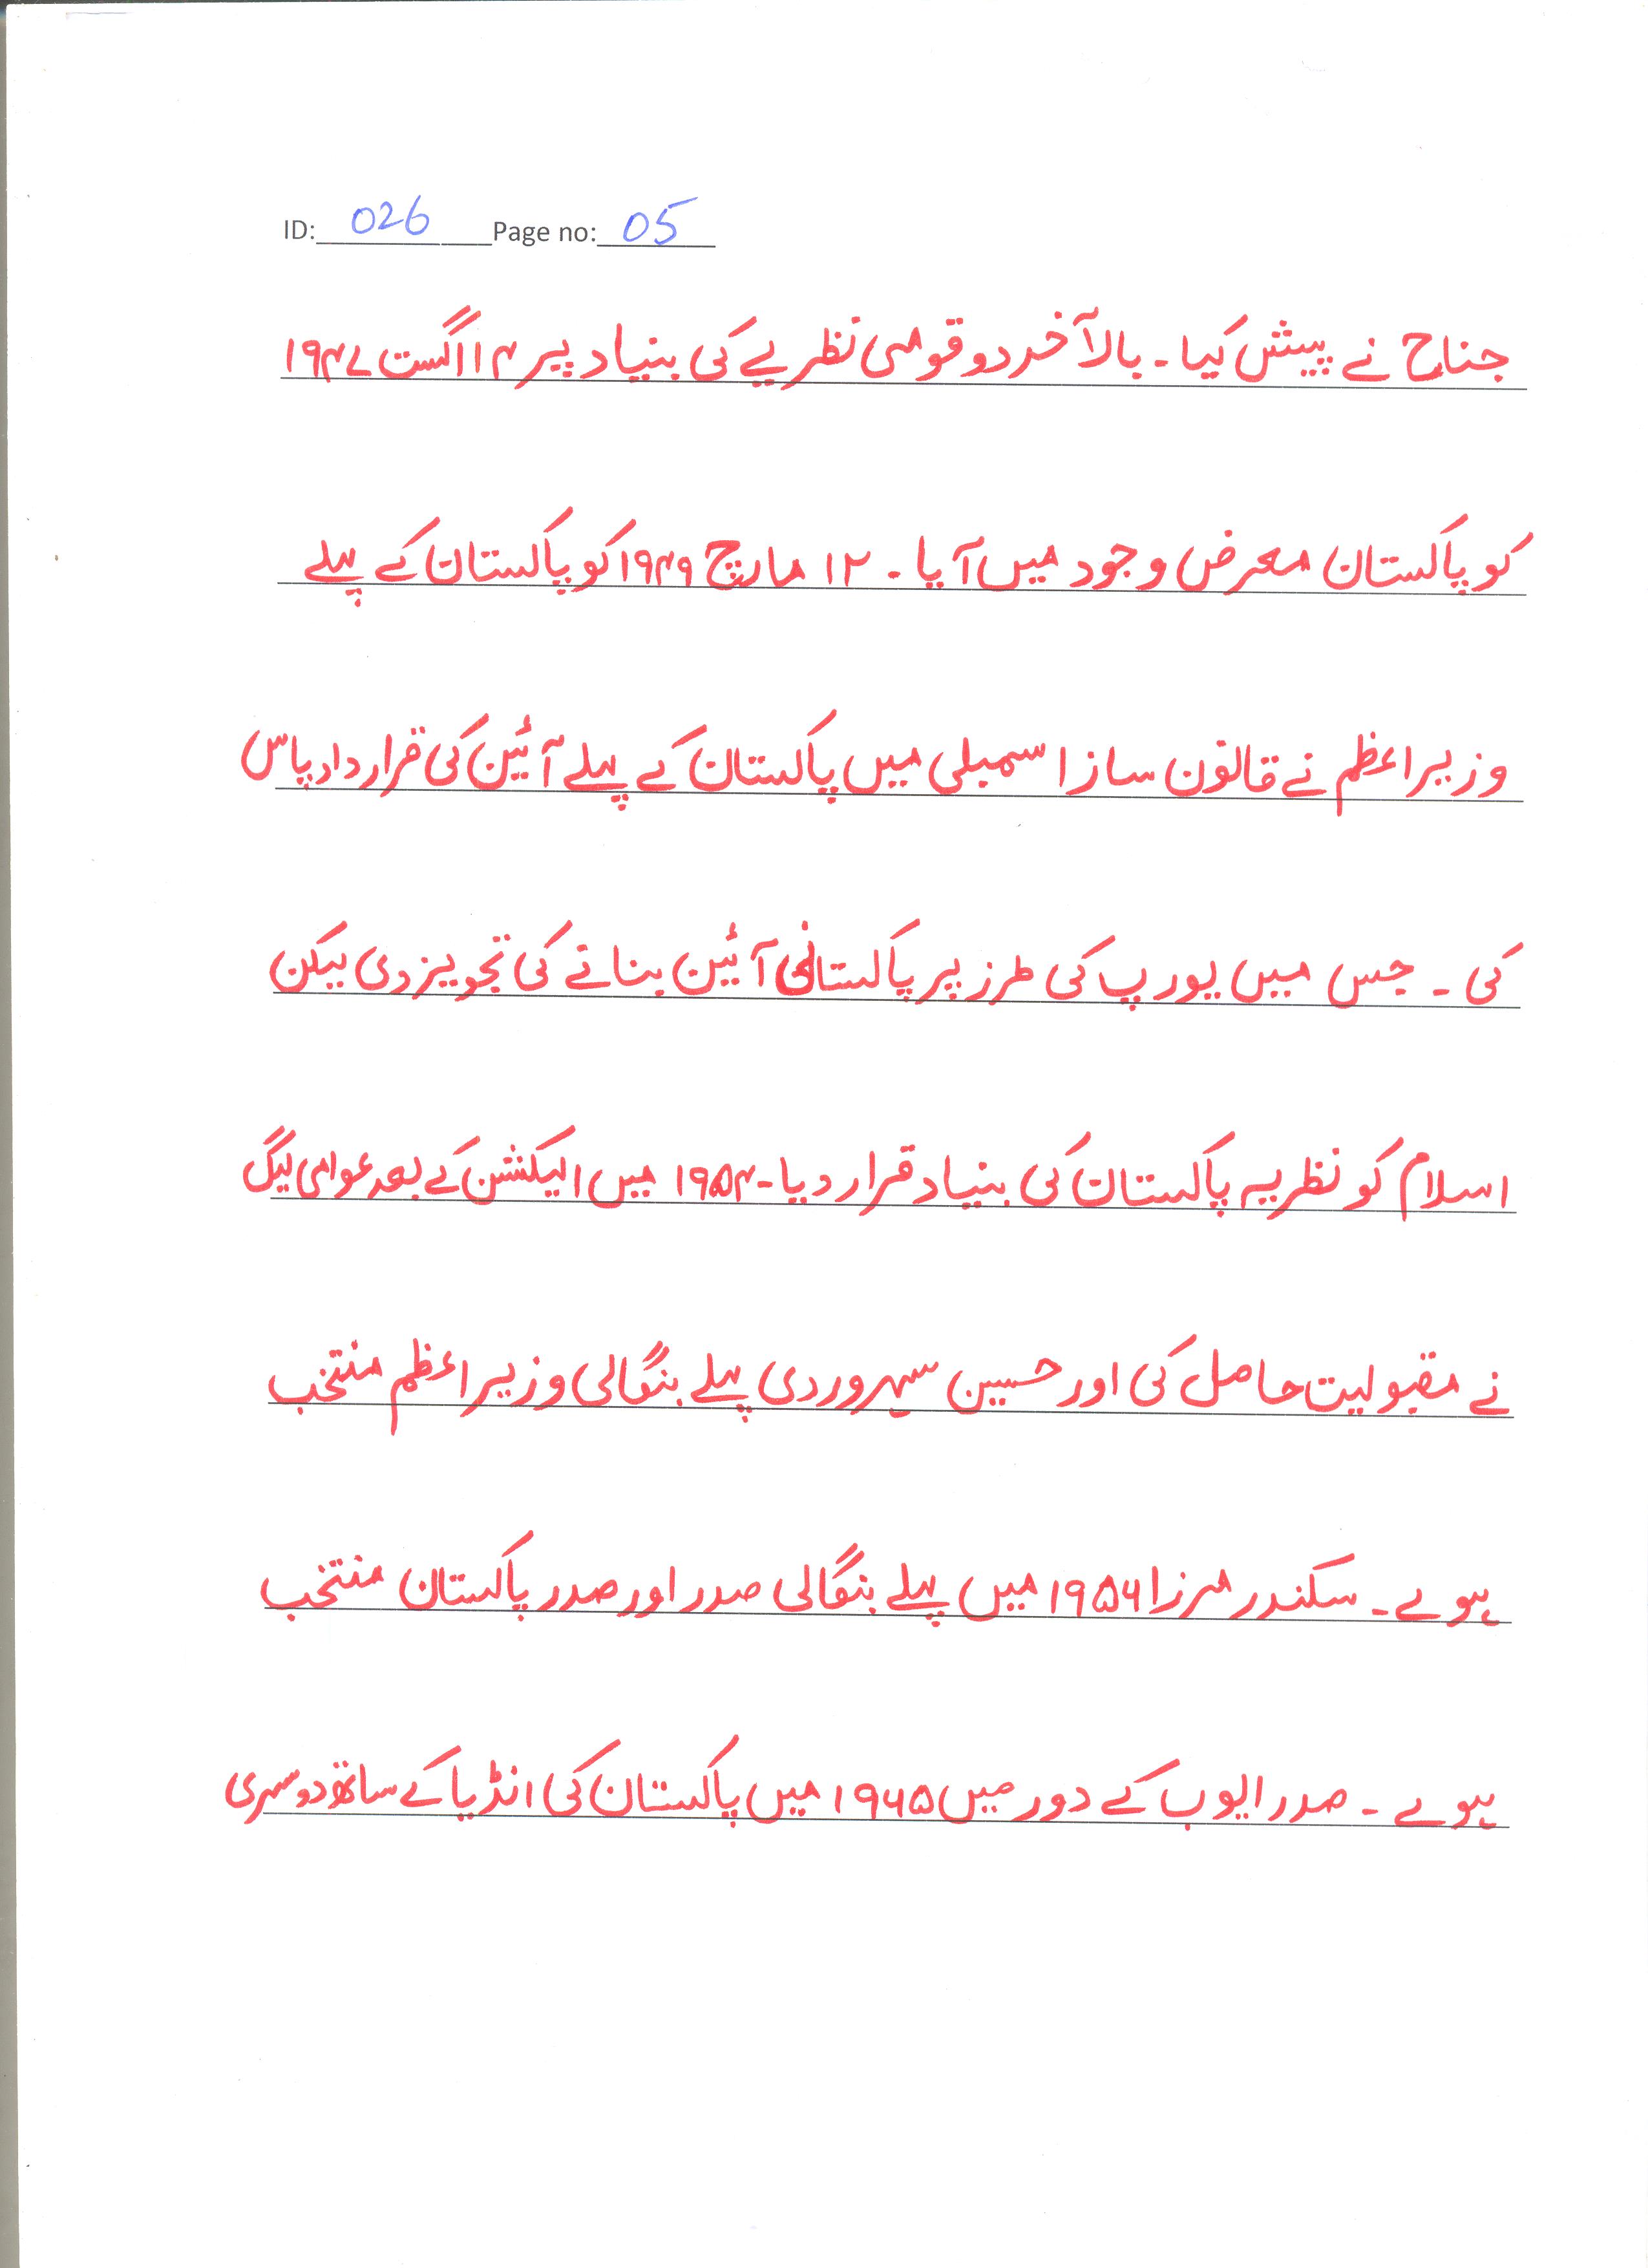 ID: 026 Page no: 05
جناح نے پیش کیا۔ بالآخر دو قومی نظریے کی بنیاد پر ۱۴ اگست ۱۹۴۷
کو پاکستان معرض وجود میں آیا۔ ۱۲ مارچ ۱۹۴۹ کو پاکستان کے پہلے
وزیراعظم نے قانون ساز اسمبلی میں پاکستان کے پہلے آئین کی قرارداد پاس
کی۔ جس میں یورپ کی طرز پر پاکستانی آئین بنانے کی تجویز دی لیکن
اسلام کو نظریہ پاکستان کی بنیاد قرار دیا۔ ۱۹۵۴ میں الیکشن کے بعد عوامی لیگ
نے مقبولیت حاصل کی اور حسین سہروردی پہلے بنگالی وزیراعظم منتخب
ہوے۔ سکندر مرزا ۱۹۵۶ میں پہلے بنگالی صدر اور صدر پاکستان منتخب
ہوے۔ صدر ایوب کے دور میں ۱۹۶۵ میں پاکستان کی انڈیا کے ساتھ دوسری